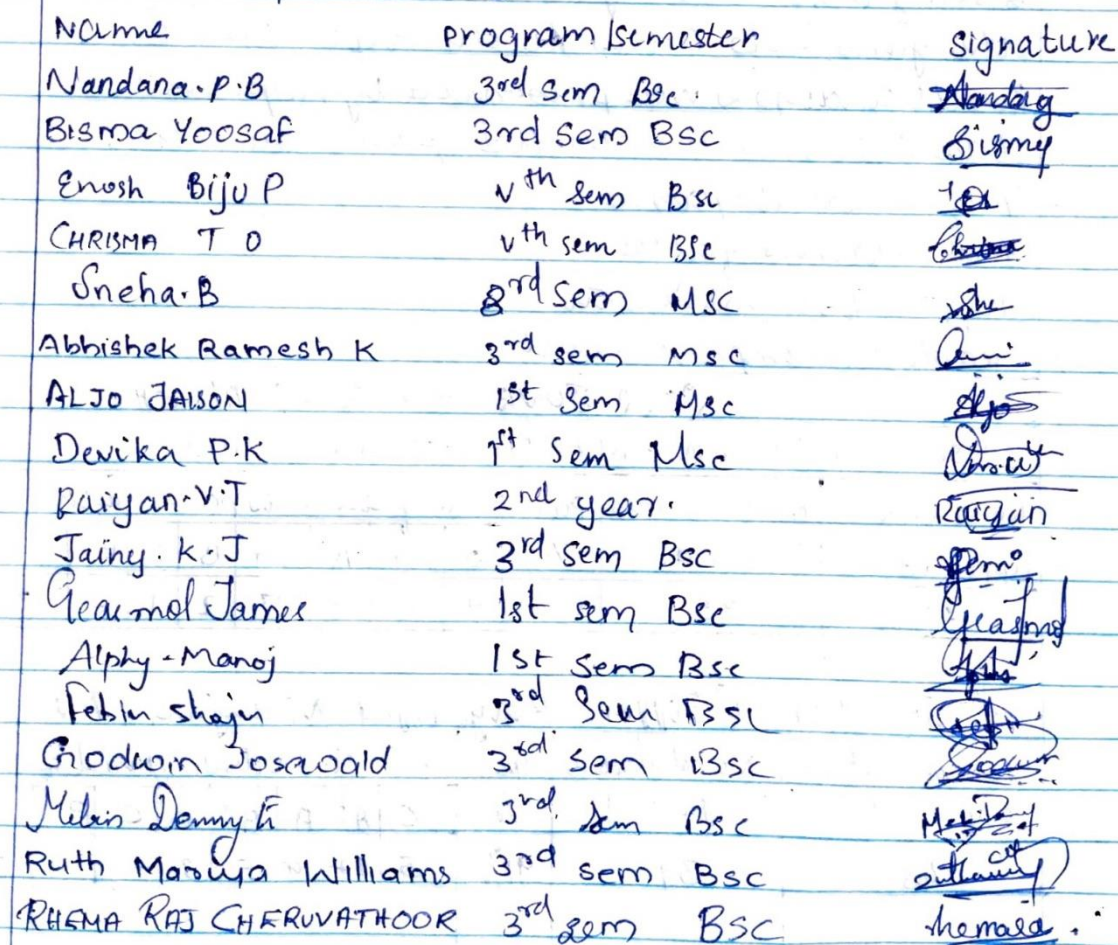 Name program/semester signature
Nandana.P.B 3rd Sem BSc.
Bisma Yoosaf 3rd Sem BSC Bismy
Enosh Biju P Vth Sem BSc
CHRISMA T O Vth sem BSc
Sneha.B 3rd Sem MSC She
Abhishek Ramesh K 3rd sem MSC
ALJO JAISON 1st Sem MSC Aljo
Devika P.K 1st Sem Msc
Raiyan.V.T 2nd year. Raiyan
Jainy.K.J 3rd Sem BSC
James 1st sem BSc
Alphy Manoj 1st Sem BSC
Febin Shaju 3rd Sem BSC
Godwin 3rd Sem BSC
Denny 3rd Sem BSC
Ruth Mariya Williams 3rd sem BSC
RHEMA RAJ CHERUVATHOOR 3rd sem BSC